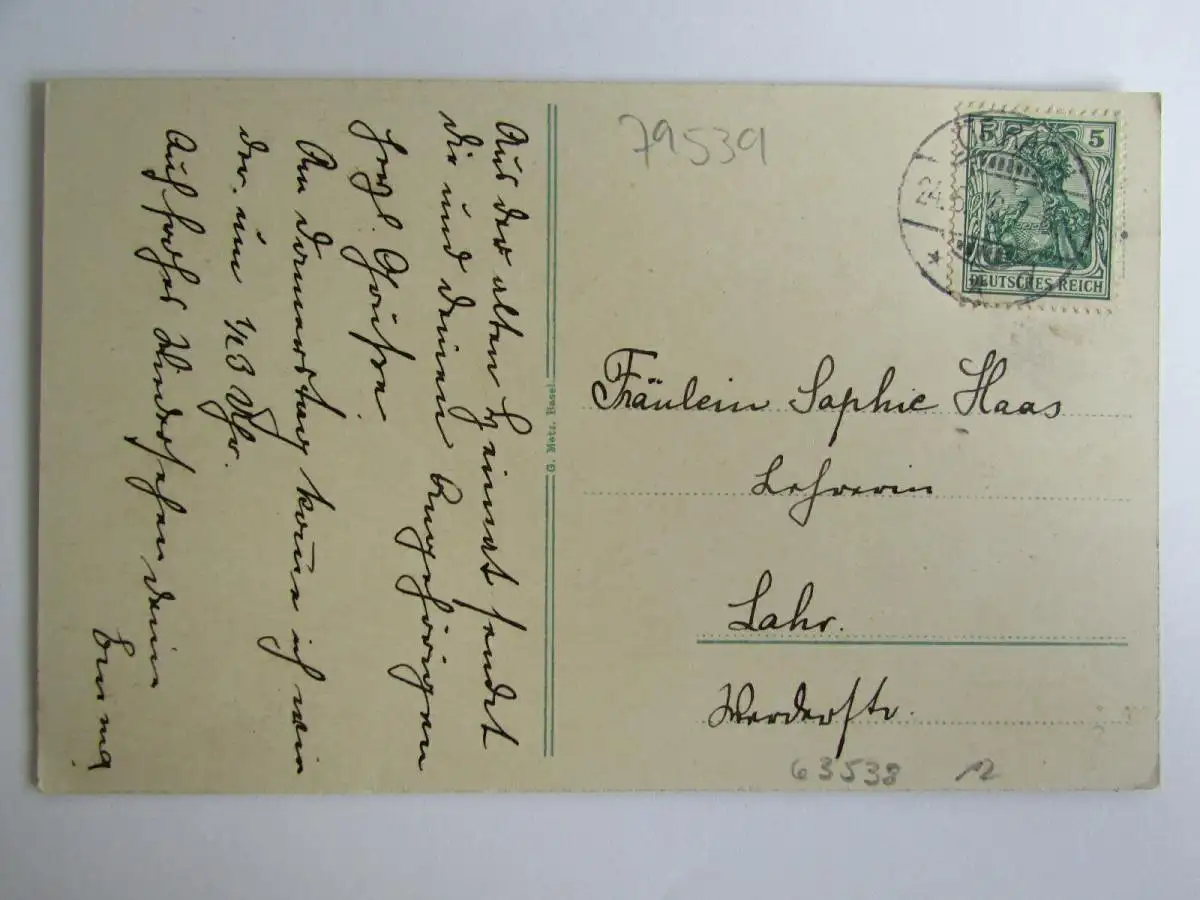 Aus der alten Heimat sendet
dir und deinen Angehörigen
herzl. Grüße.
An Donnerstag komme ich wie
der um 1/2 3 Uhr.
Auf frohes Wiedersehen deine
Emma
79539
5 5
DEUTSCHES REICH
24.
G. Metz, Basel.
Fräulein Sophie Haas
Lehrerin
Lahr.
Werderstr.
63538 12